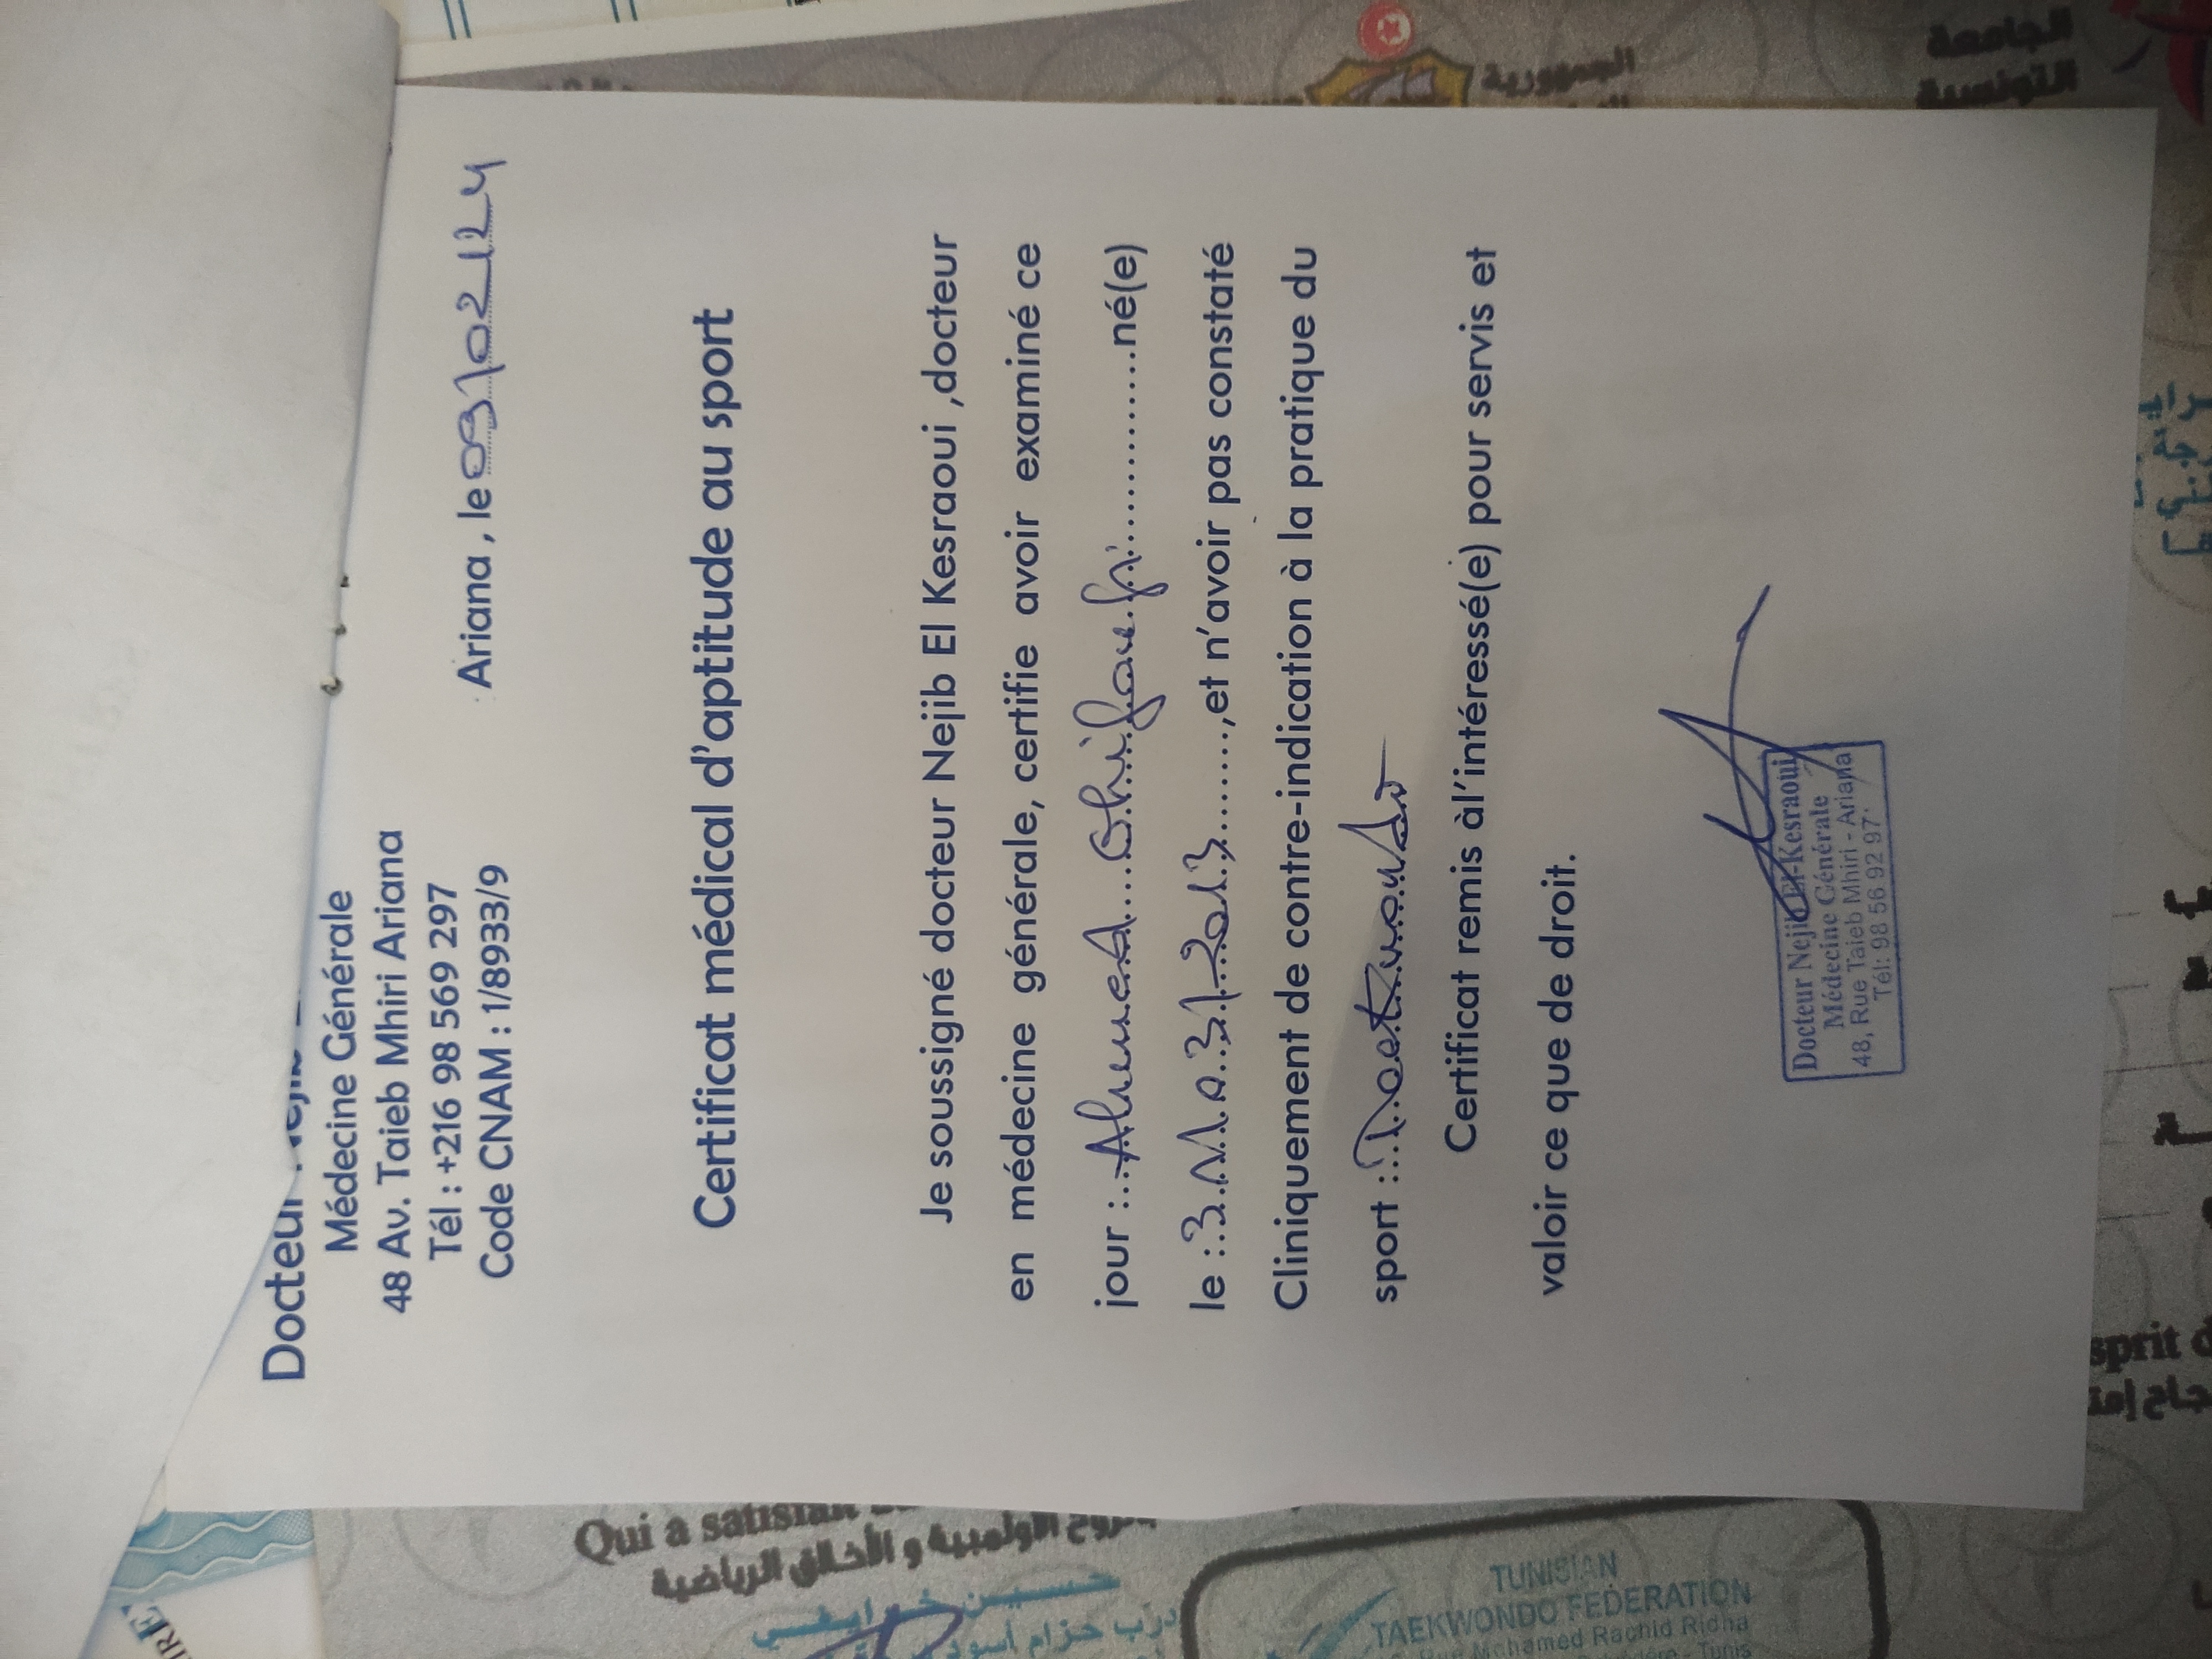 Docteur
Médecine Générale
48 Av. Taieb Mhiri Ariana
Tél : +216 98 569 297
Code CNAM : 1/8933/9
Ariana , le 03/02/24
Certificat médical d'aptitude au sport
Je soussigné docteur Nejib El Kesraoui ,docteur
en médecine générale, certifie avoir examiné ce
jour :..Ahmed............né(e)
le :........,et n'avoir pas constaté
Cliniquement de contre-indication à la pratique du
sport :
Certificat remis àl'intéressé(e) pour servis et
valoir ce que de droit.
Docteur Nejib El-Kesraoui
Médecine Générale
48, Rue Taieb Mhiri - Ariana
Tél: 98 56 92 97
الجمهورية
الجامعة
التونسية
Qui a satisfait
الروح الأولمبية و الأخلاق الرياضية
TUNISIAN
TAEKWONDO FEDERATION
Mohamed Rachid Ridha
Tunis